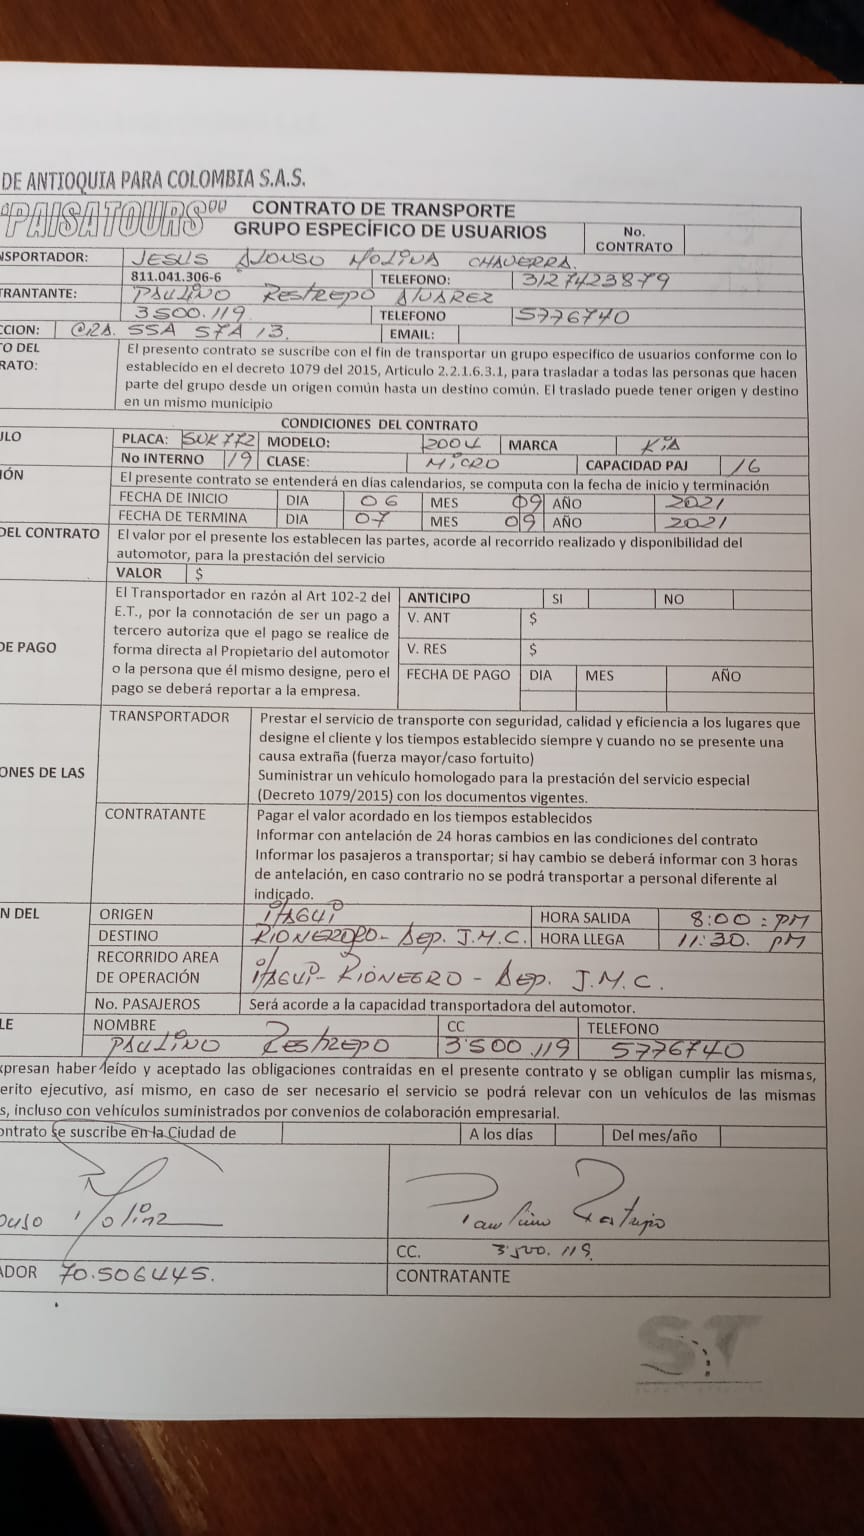 DE ANTIOQUIA PARA COLOMBIA S.A.S.
"PAISATOURS" CONTRATO DE TRANSPORTE
GRUPO ESPECÍFICO DE USUARIOS No. CONTRATO
NSPORTADOR: JESUS ALONSO MOLINA CHAVERRA.
811.041.306-6 TELEFONO: 3127423879
TRANTANTE: PAULINO RESTREPO ALVAREZ
3500.119 TELEFONO 5776740
CCION: CRA. 55A 57A 13. EMAIL:
TO DEL El presento contrato se suscribe con el fin de transportar un grupo especifico de usuarios conforme con lo
RATO: establecido en el decreto 1079 del 2015, Articulo 2.2.1.6.3.1, para trasladar a todas las personas que hacen
parte del grupo desde un origen común hasta un destino común. El traslado puede tener origen y destino
en un mismo municipio
CONDICIONES DEL CONTRATO
ULO PLACA: SUK772 MODELO: 2004 MARCA KIA
No INTERNO 19 CLASE: MICRO CAPACIDAD PAJ 16
IÓN El presente contrato se entenderá en días calendarios, se computa con la fecha de inicio y terminación
FECHA DE INICIO DIA 06 MES 09 AÑO 2021
FECHA DE TERMINA DIA 07 MES 09 AÑO 2021
DEL CONTRATO El valor por el presente los establecen las partes, acorde al recorrido realizado y disponibilidad del
automotor, para la prestación del servicio
VALOR $
El Transportador en razón al Art 102-2 del ANTICIPO SI NO
E.T., por la connotación de ser un pago a V. ANT $
tercero autoriza que el pago se realice de
DE PAGO forma directa al Propietario del automotor V. RES $
o la persona que él mismo designe, pero el FECHA DE PAGO DIA MES AÑO
pago se deberá reportar a la empresa.
TRANSPORTADOR Prestar el servicio de transporte con seguridad, calidad y eficiencia a los lugares que
designe el cliente y los tiempos establecido siempre y cuando no se presente una
causa extraña (fuerza mayor/caso fortuito)
ONES DE LAS Suministrar un vehículo homologado para la prestación del servicio especial
(Decreto 1079/2015) con los documentos vigentes.
CONTRATANTE Pagar el valor acordado en los tiempos establecidos
Informar con antelación de 24 horas cambios en las condiciones del contrato
Informar los pasajeros a transportar; si hay cambio se deberá informar con 3 horas
de antelación, en caso contrario no se podrá transportar a personal diferente al
indicado.
N DEL ORIGEN ITAGUI HORA SALIDA 8:00: PM
DESTINO RIONEGRO- AEP. J.M.C. HORA LLEGA 11:30. PM
RECORRIDO AREA
DE OPERACIÓN ITAGUI- RIONEGRO - AEP. J.M.C.
No. PASAJEROS Será acorde a la capacidad transportadora del automotor.
LE NOMBRE CC TELEFONO
PAULINO RESTREPO 3'500.119 5776740
xpresan haber leído y aceptado las obligaciones contraídas en el presente contrato y se obligan cumplir las mismas,
erito ejecutivo, así mismo, en caso de ser necesario el servicio se podrá relevar con un vehículos de las mismas
s, incluso con vehículos suministrados por convenios de colaboración empresarial.
ontrato se suscribe en la Ciudad de A los días Del mes/año
Molina Paulino Restrepo
CC. 3'500.119.
ADOR 70.506445. CONTRATANTE
ST